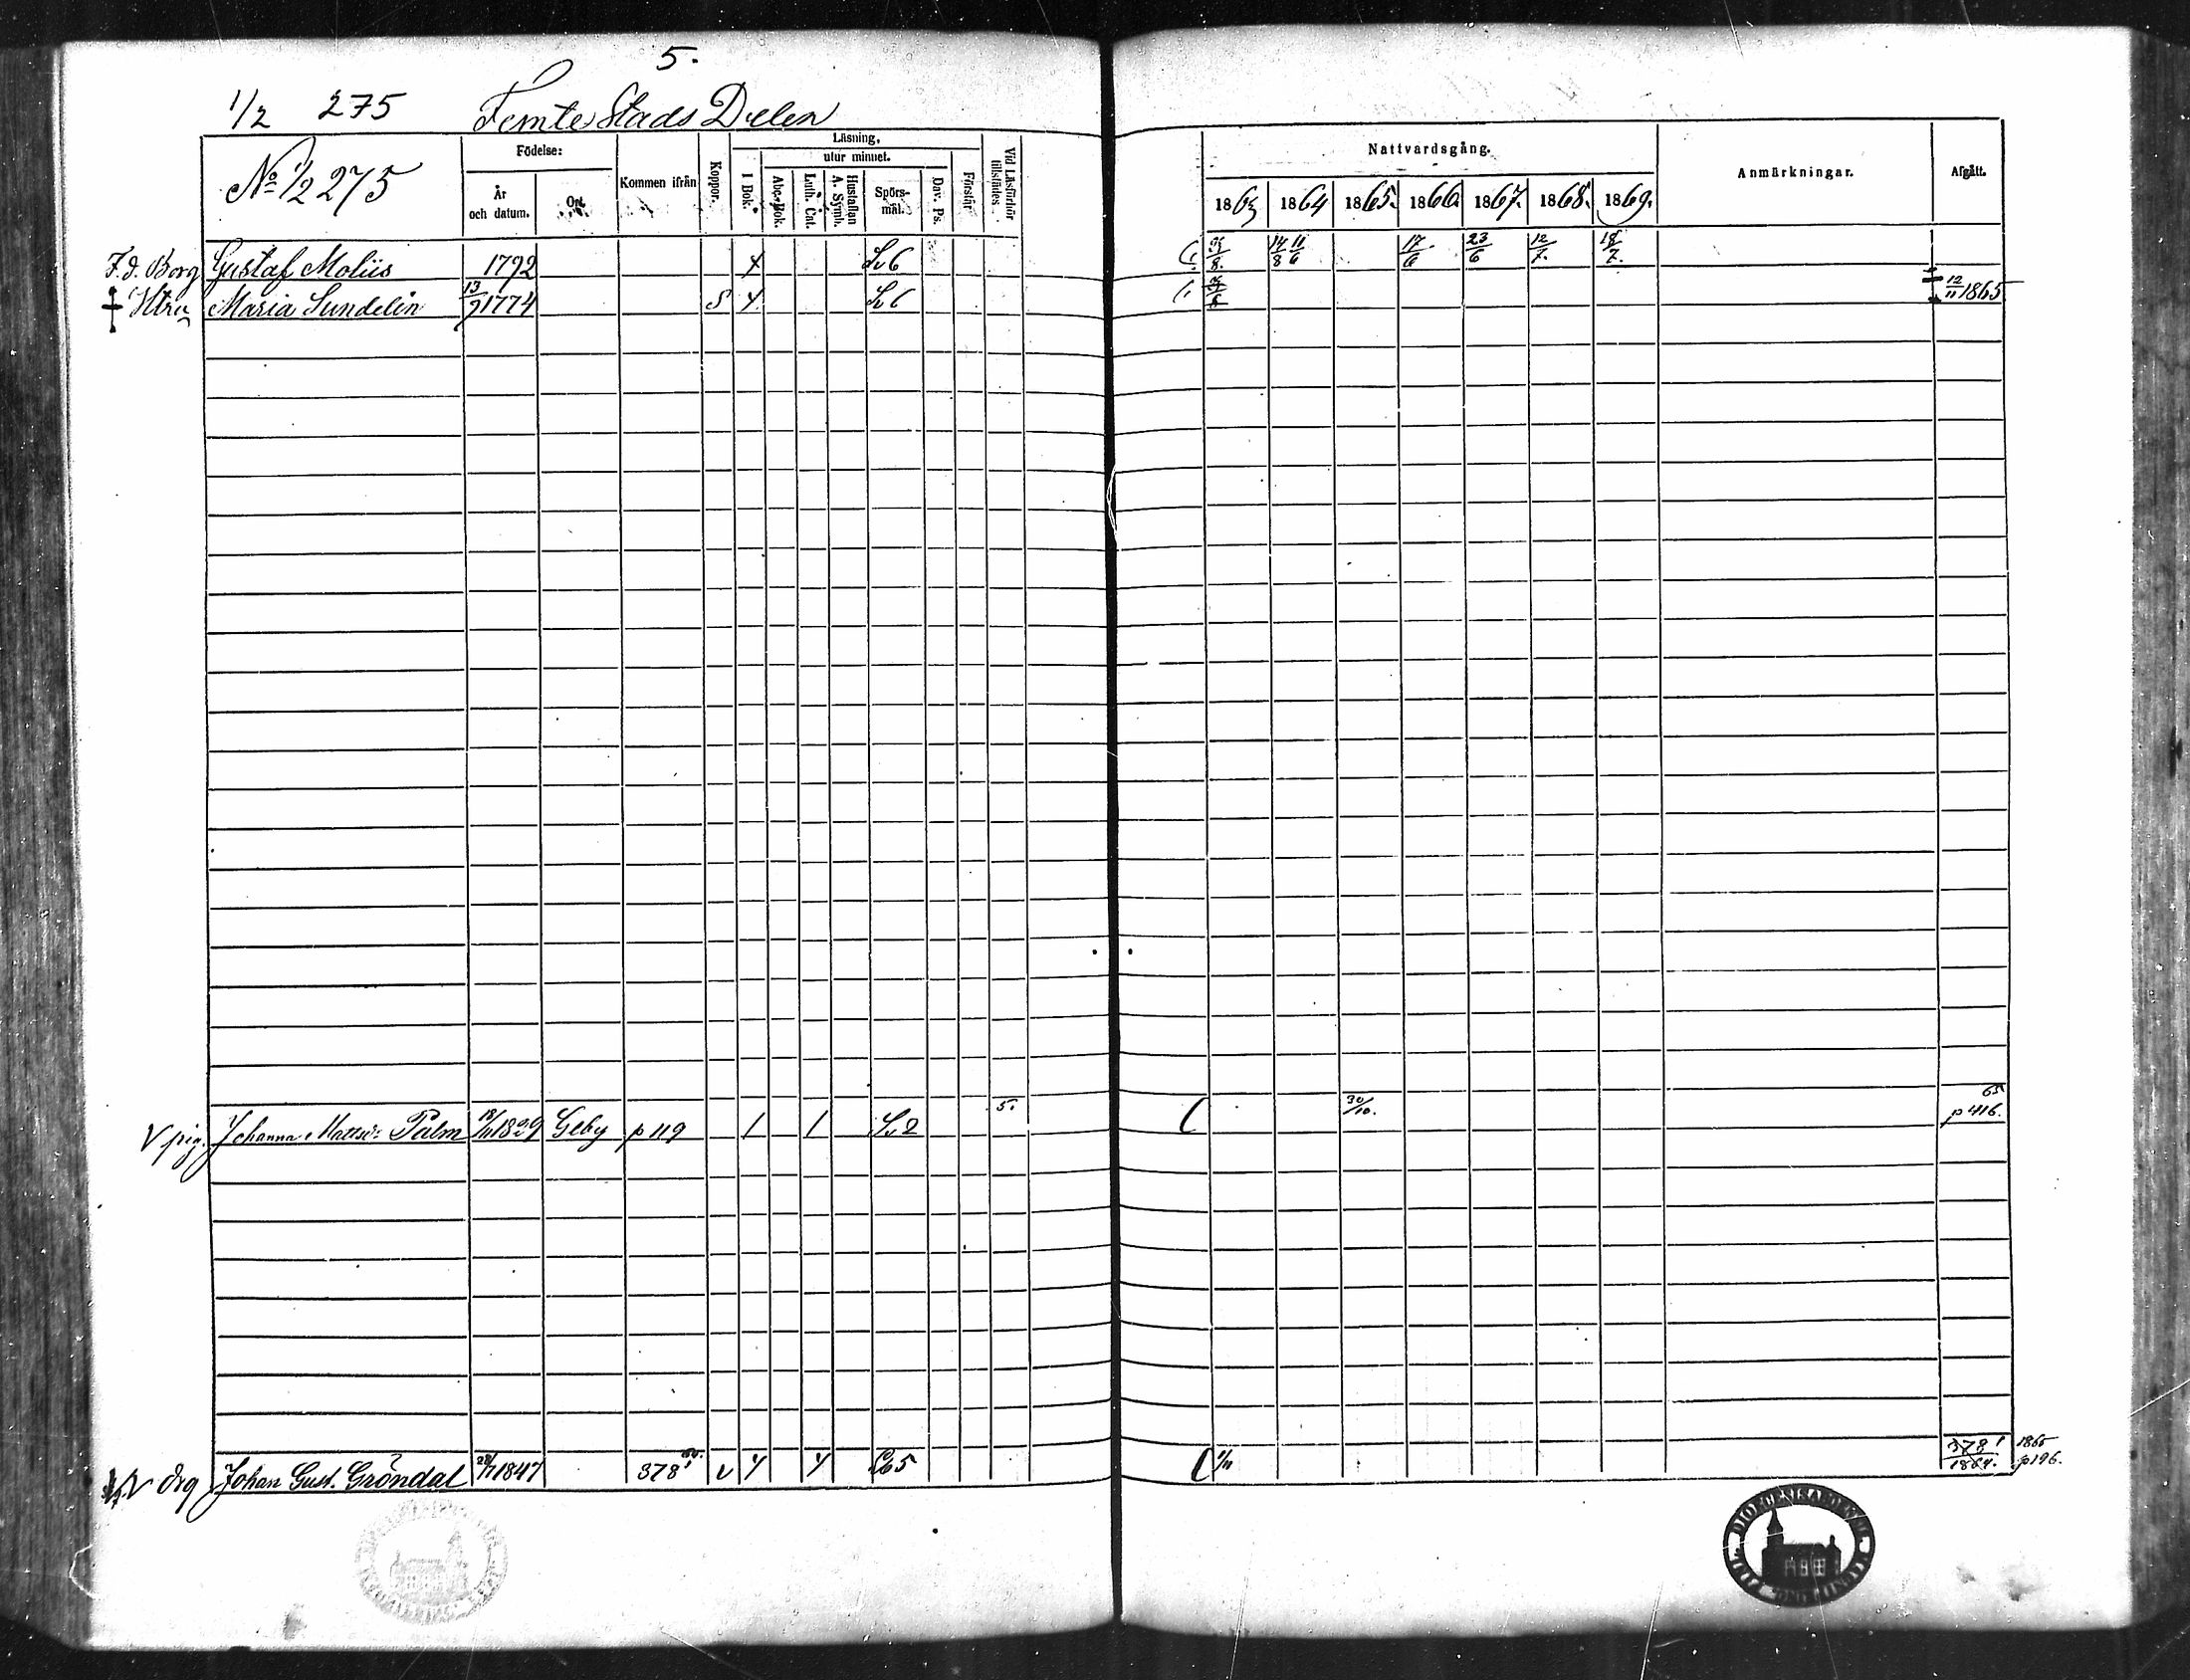 5.
1/2 275 Femte Stads Delen
No 1/2 275
Födelse:
År och datum.
Ort.
Kommen ifrån
Koppor.
Läsning,
I Bok.
utur minnet.
Abc-Bok.
Luth. Cat.
Hustaflan A. Symb.
Spörs-mål.
Dav. Ps.
Förstår
Vid Läsförhör tillstädes
Nattvardsgång.
1863 1864 1865. 1866 1867. 1868. 1869.
Anmärkningar.
Afgått.
F.d. Borg Gustaf Molüs 1792 Sv 6 14/8 11/6 17/6 23/6 12/7. 18/7.
Maria Sundelin 13/7 1774 S Sv 6 12/11 1865
V pig. Johanna Mattsdr Palm 18/11 1829 Geby p 119 1 1 Sv 2 5. 30/10. 65 p 416.
drg Johan Gust. Gröndal 28/7 1847 378 v 1/11 378 1864. 1865 p196.